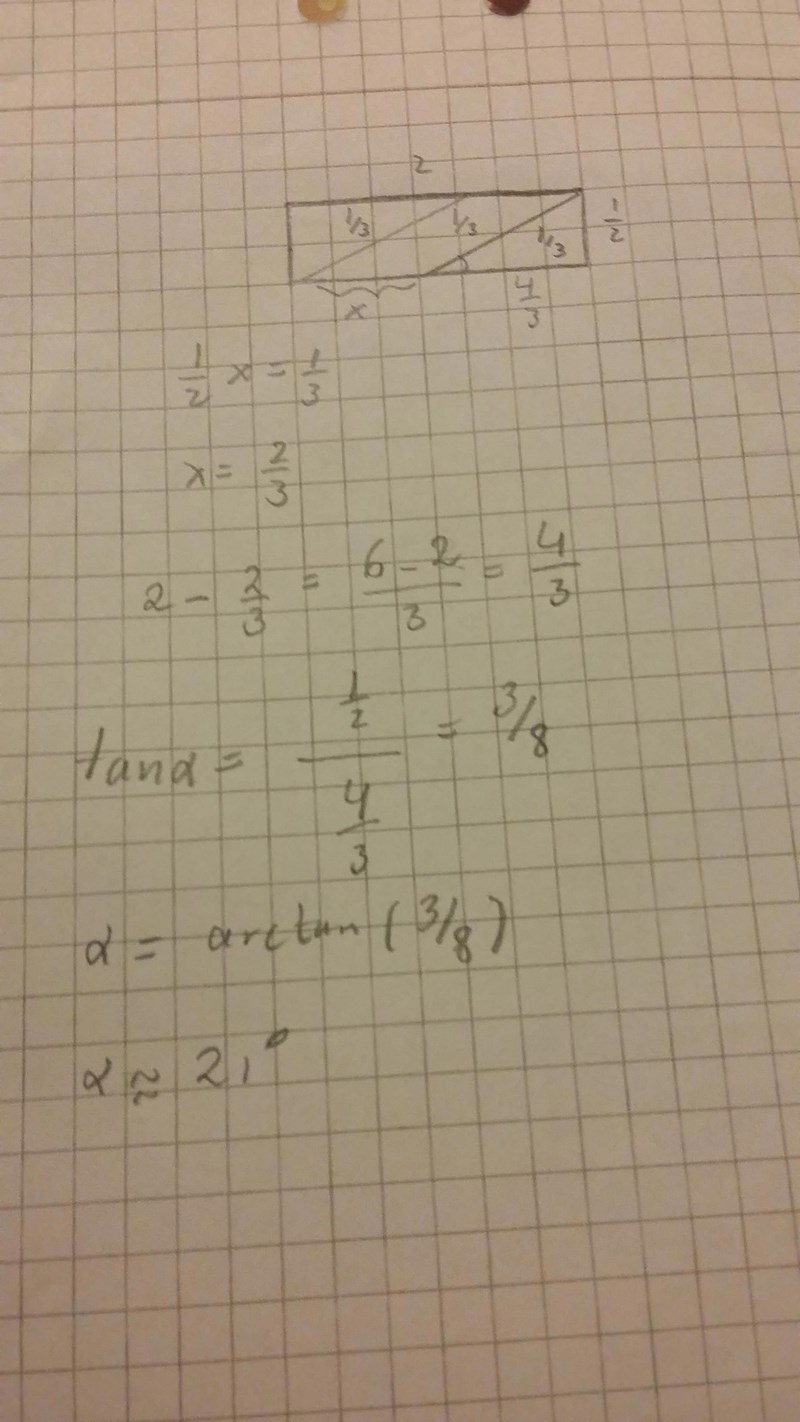 2
1/3 1/3 1/3 1/2
x 4/3
1/2 x = 1/3
x = 2/3
2 - 2/3 = (6-2)/3 = 4/3
tanα = (1/2)/(4/3) = 3/8
α = arctan (3/8)
α ≈ 21°